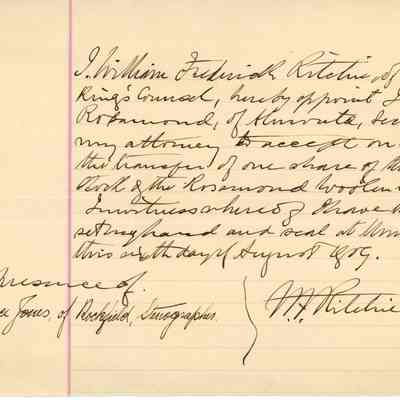 I, William Frederick Ritchie, of
King's Counsel, hereby appoint
Rosamond, of Almonte,
my attorney to accept on
the transfer of one share of the
Stock of the Rosamond Woolen
In witness whereof I have
set my hand and seal at
this sixth day of August 1909.
Presence of.
Jones, of Rockfield, Stenographer.
W.F. Ritchie